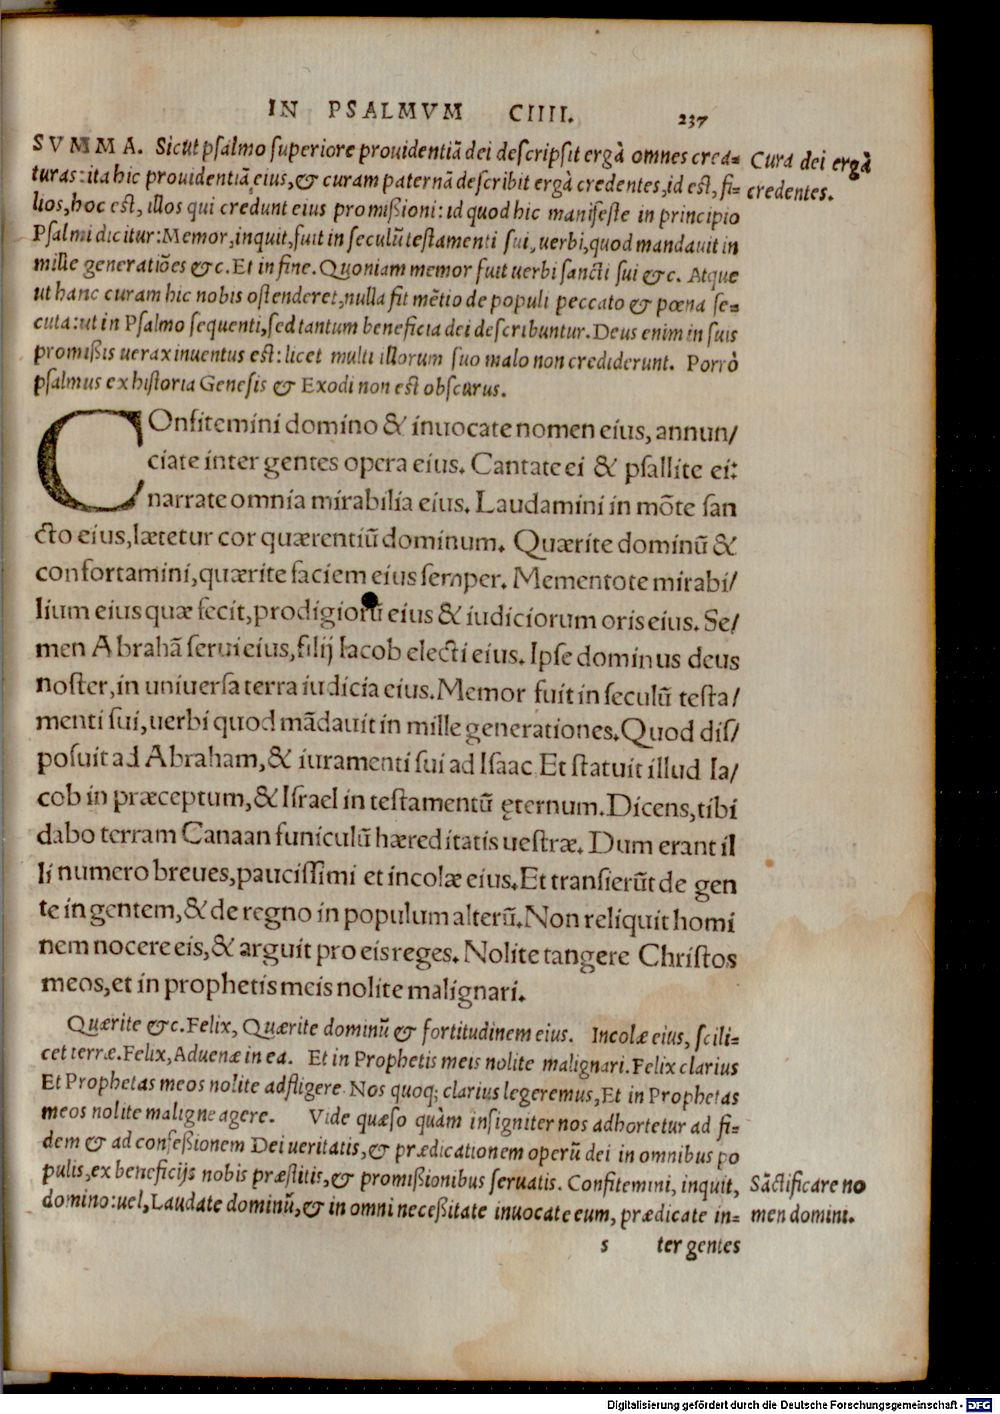 IN PSALMVM CIIII. 237
SVMMA. Sicut psalmo superiore prouidentiã dei descripsit ergà omnes crea=
Cura dei ergà
turas: ita hic prouidentiã eius, & curam paternã describit ergà credentes, id est, fi=
credentes.
lios, hoc est, illos qui credunt eius promißioni: id quod hic manifeste in principio
Psalmi dicitur: Memor, inquit, fuit in seculũ testamenti sui, uerbi, quod mandauit in
mille generatiões &c. Et in fine. Quoniam memor fuit uerbi sancti sui &c. Atque
ut hanc curam hic nobis ostenderet, nulla fit mẽtio de populi peccato & pœna se=
cuta: ut in Psalmo sequenti, sed tantum beneficia dei describuntur. Deus enim in suis
promißis uerax inuentus est: licet multi illorum suo malo non crediderunt. Porrò
psalmus ex historia Genesis & Exodi non est obscurus.
COnfitemini domino & inuocate nomen eius, annun/
ciate inter gentes opera eius. Cantate ei & psallite ei:
narrate omnia mirabilia eius. Laudamini in mõte san
cto eius, lætetur cor quærentiũ dominum. Quærite dominũ &
confortamini, quærite faciem eius semper. Mementote mirabi/
lium eius quæ fecit, prodigiorũ eius & iudiciorum oris eius. Se/
men Abrahã serui eius, filij Iacob electi eius. Ipse dominus deus
noster, in uniuersa terra iudicia eius. Memor fuit in seculũ testa/
menti sui, uerbi quod mãdauit in mille generationes. Quod dis/
posuit ad Abraham, & iuramenti sui ad Isaac Et statuit illud Ia/
cob in præceptum, & Israel in testamentũ ęternum. Dicens, tibi
dabo terram Canaan funiculũ hæreditatis uestræ. Dum erant il
li numero breues, paucissimi et incolæ eius. Et transierũt de gen
te in gentem, & de regno in populum alterũ. Non reliquit homi
nem nocere eis, & arguit pro eis reges. Nolite tangere Christos
meos, et in prophetis meis nolite malignari.
Quærite &c. Felix, Quærite dominũ & fortitudinem eius. Incolæ eius, scili=
cet terræ. Felix, Aduenæ in ea. Et in Prophetis meis nolite malignari. Felix clarius
Et Prophetas meos nolite adfligere. Nos quoq; clarius legeremus, Et in Prophetas
meos nolite maligne agere. Vide quæso quàm insigniter nos adhortetur ad fi=
dem & ad confeßionem Dei ueritatis, & prædicationem operũ dei in omnibus po
pulis, ex beneficijs nobis præstitis, & promißionibus seruatis. Confitemini, inquit,
Sãctificare no
domino: uel, Laudate dominũ, & in omni neceßitate inuocate eum, prædicate in=
men domini.
s ter gentes
Digitalisierung gefördert durch die Deutsche Forschungsgemeinschaft - DFG